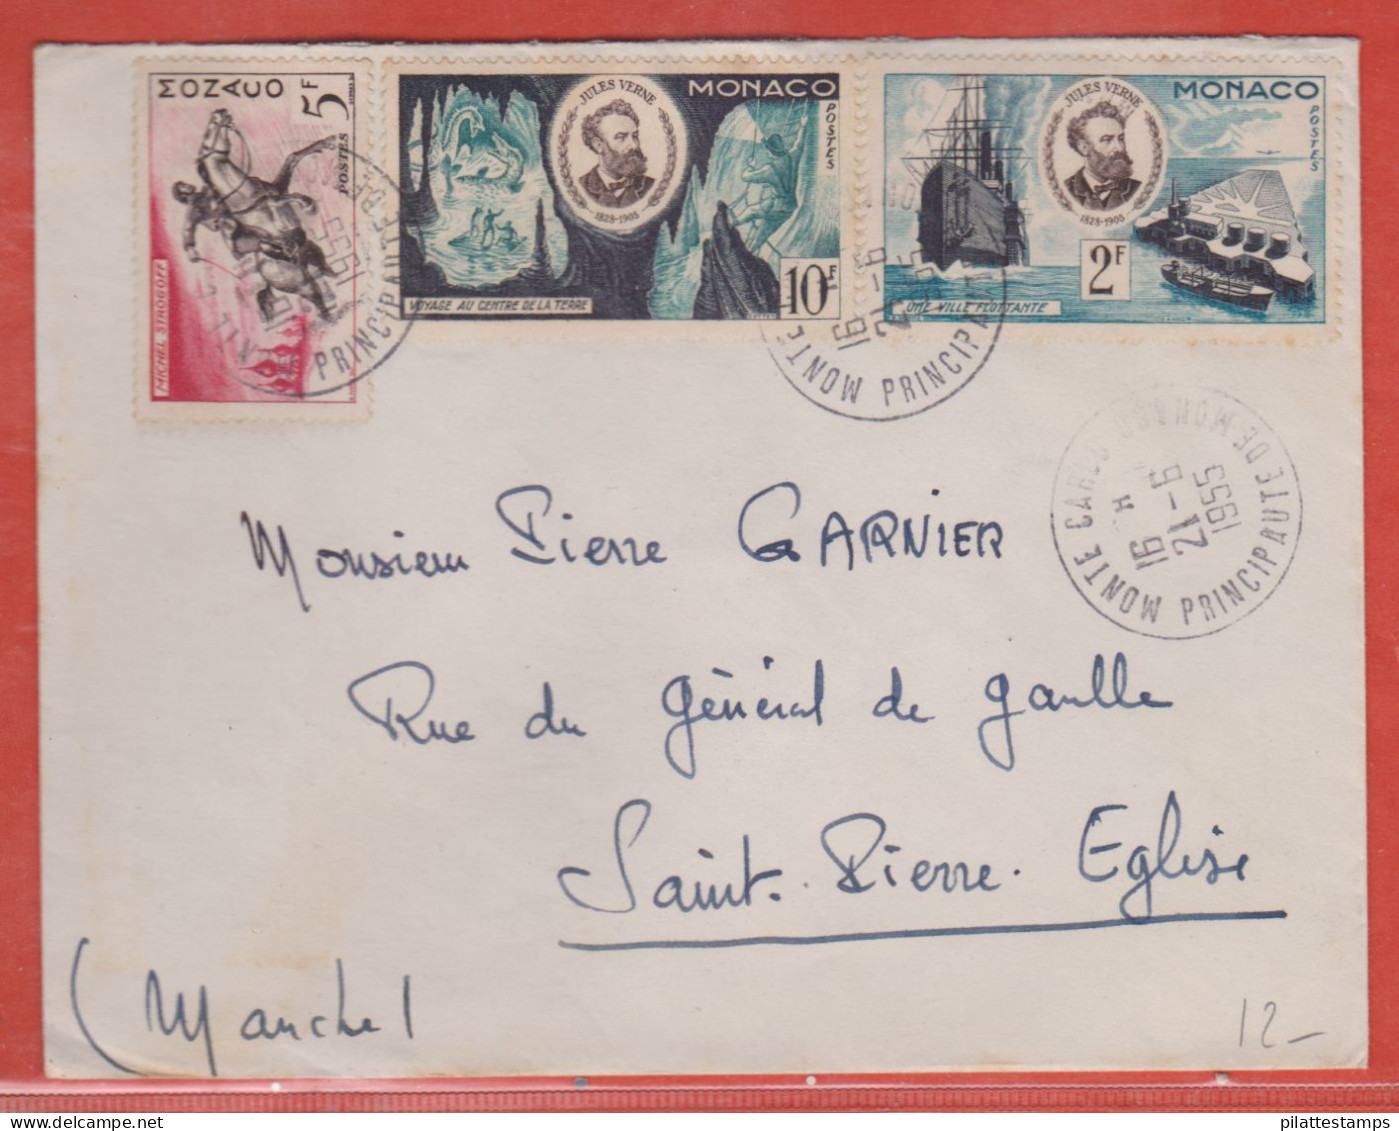 MONACO
5F
POSTES
MICHEL STROGOFF
JULES VERNE
1828-1905
MONACO
POSTES
VOYAGE AU CENTRE DE LA TERRE
10F
JULES VERNE
1828-1905
MONACO
POSTES
2F
UNE VILLE FLOTTANTE
MONTE CARLO PRINCIPAUTE DE MONACO
16 H
21-6
1955
Monsieur Pierre GARNIER
Rue du Général de Gaulle
Saint-Pierre-Eglise
(Manche)
12-
pilattestamps